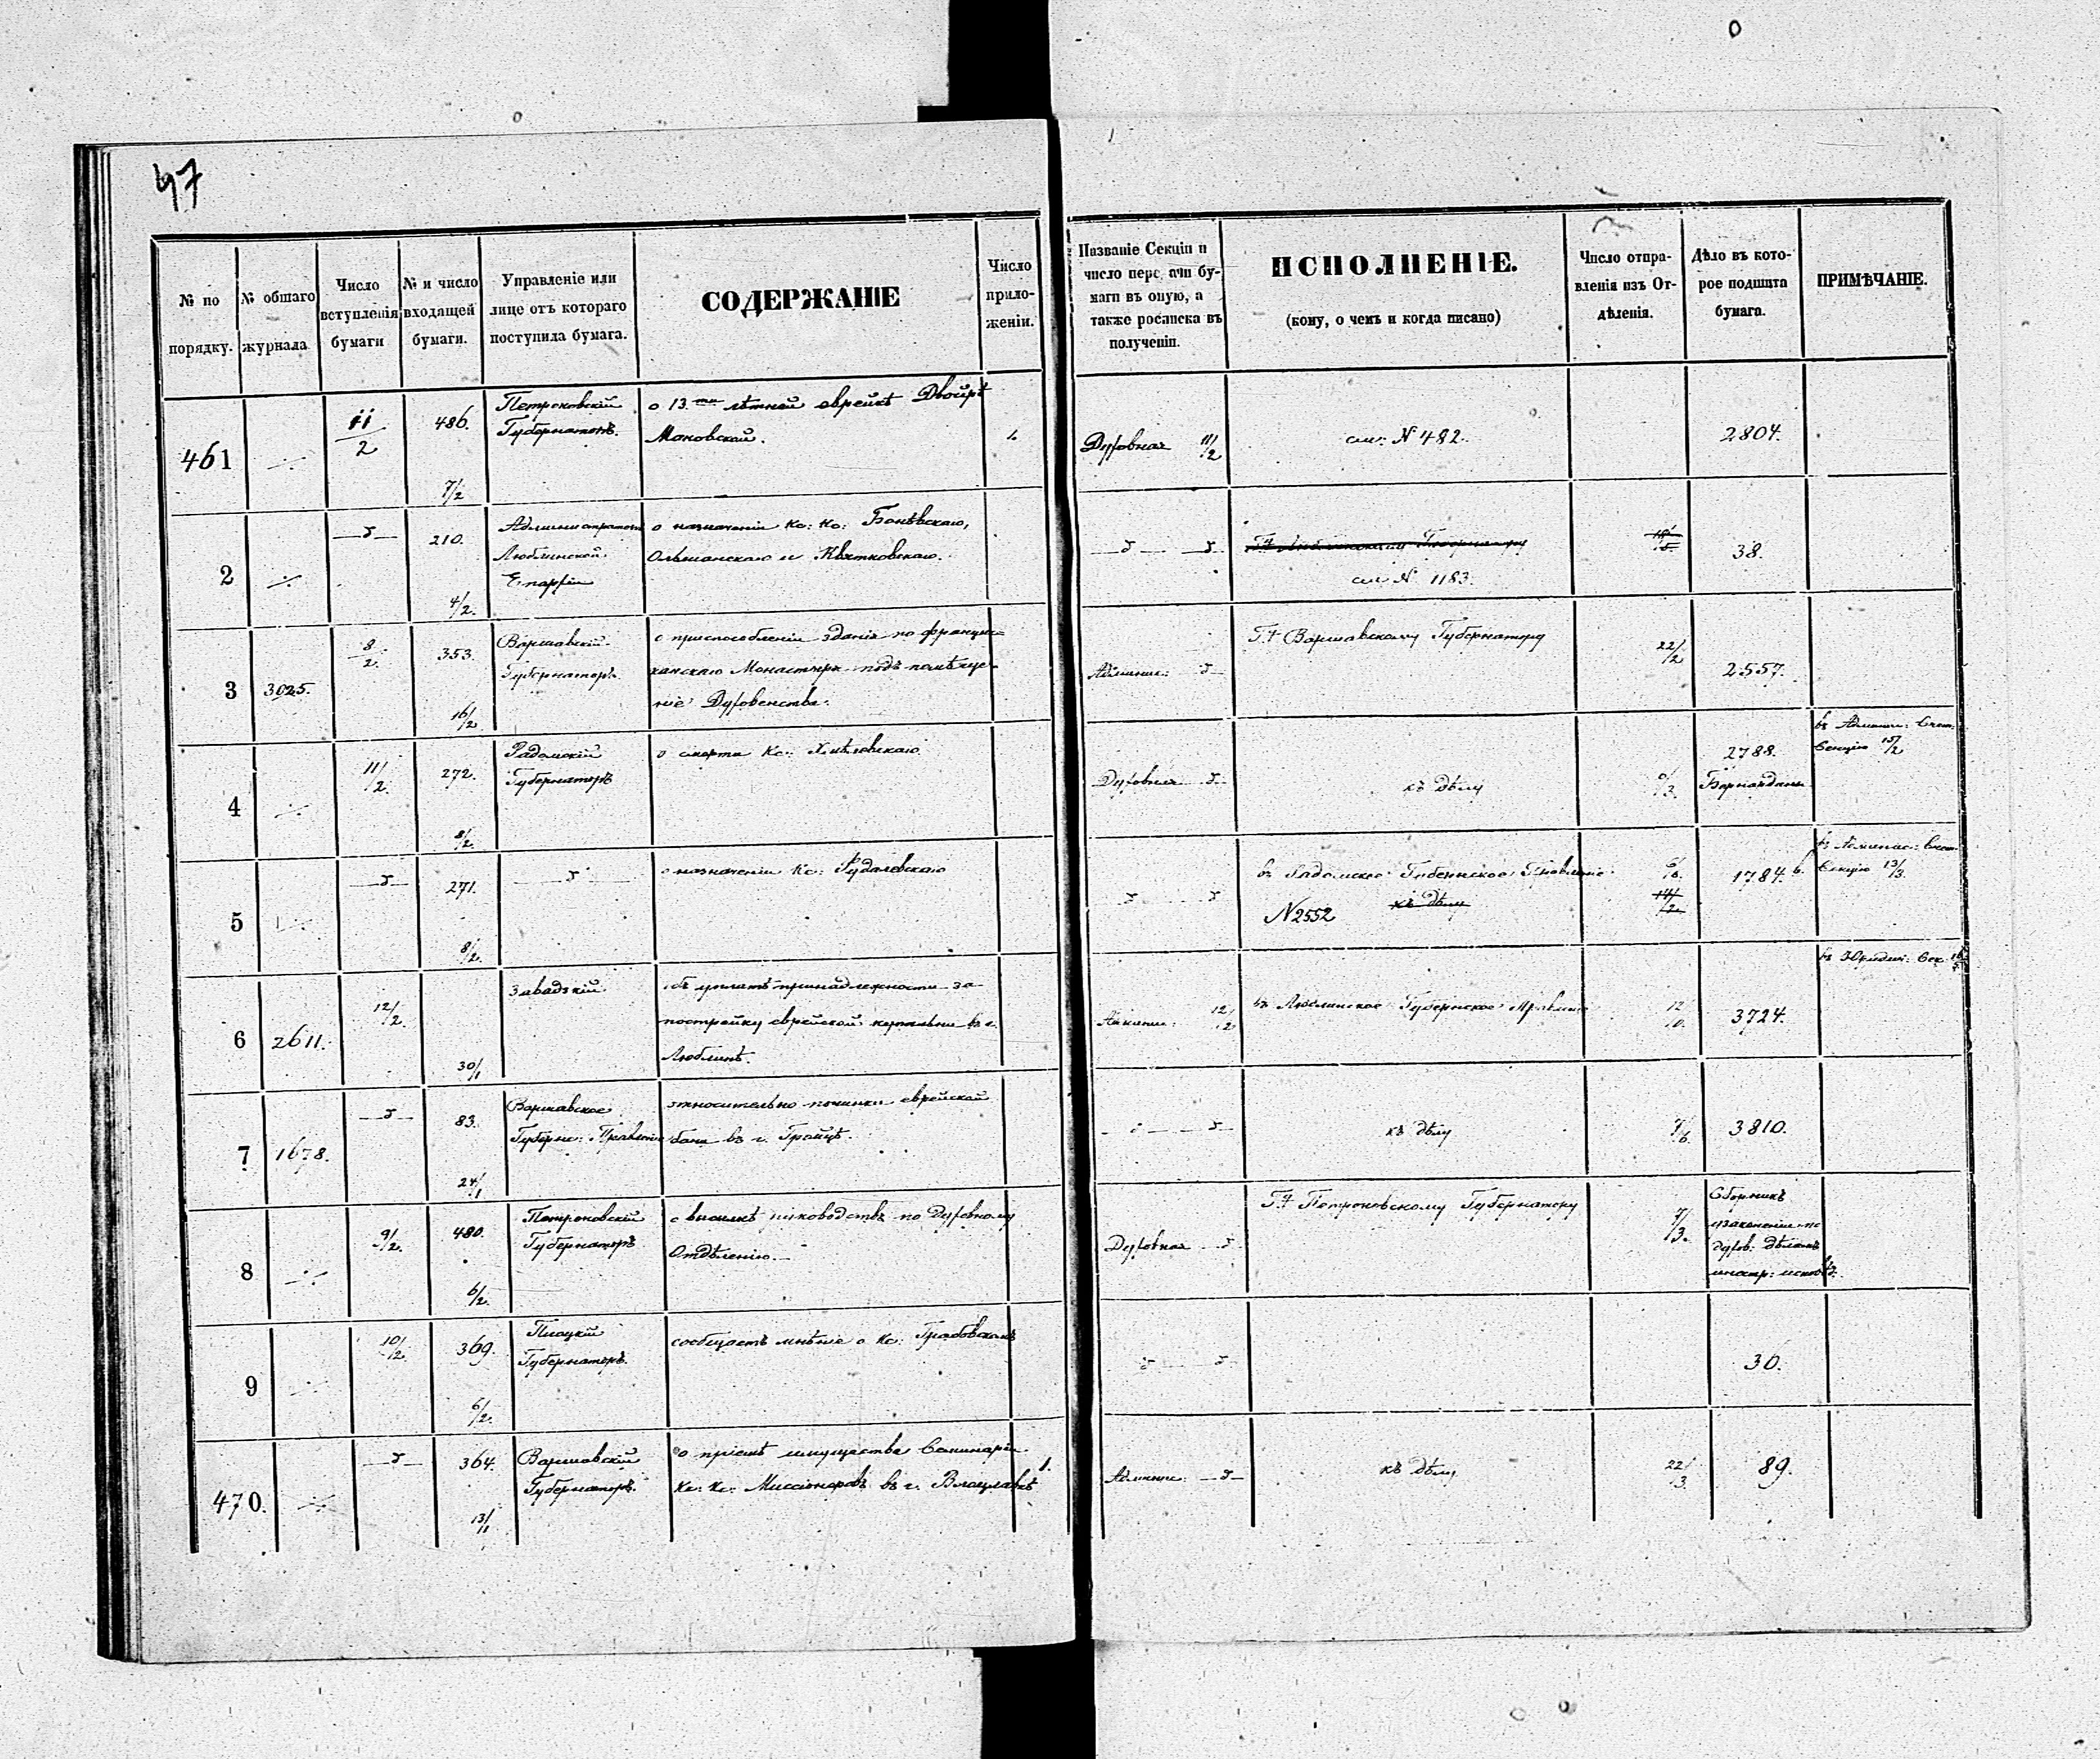 47
№ по порядку.
№ общаго журнала
Число вступленія бумаги
№ и число входящей бумаги.
Управленіе или лице отъ котораго поступила бумага.
СОДЕРЖАНІЕ
Число приложеніи.
Названіе Секціи и число передачи бумаги въ оную, а также росписка въ полученіи.
ИСПОЛНЕНІЕ.
(кому, о чемъ и когда писано)
Число отправленія изъ Отдѣленія.
Дѣло въ которое подшита бумага.
ПРИМѢЧАНІЕ.
461
11/2
486.
7/2
Петроковскій
Губернаторъ.
о 13.ти лѣтней еврейкѣ Двойрѣ
Маковской.
Духовная 11/2
см: № 482.
2804.
2
210.
4/2.
Администраторъ
Люблинской
Епархіи
о назначеніи Кс: Кс:
Ольшанскаго и Квятковскаго.
см № 1183.
38.
3
3025.
8/2.
353.
16/2
Варшавскій
Губернаторъ.
о приспособленіи зданія по францис=
канскаго Монастыря подъ помѣще=
ніе Духовенства.
Админис:
Г. Варшавскому Губернатору
22/2
2557.
4
11/2.
272.
8/2.
Радомскій
Губернаторъ
о смерти Кс:
Духовная
къ дѣлу
2788.
въ Админис:
Секцію 15/2
5
271.
8/2.
о назначеніи Кс:
въ Радомское Губернское Правленіе
№ 2552
къ дѣлу
1784.
Секцію 13/3.
6
2611.
12/2.
30/1
Завадзкій
объ уплатѣ принадлежности за
постройку еврейской купальни въ г.
Люблинѣ.
12/2
въ Люблинское Губернское Правленіе
12/10.
3724.
въ Юридич: Сек.
7
1678.
83.
24/1
Варшавское
Губерн: Правленіе
относительно починки еврейской
бани въ г. Гройцѣ.
къ дѣлу
7/6.
3810.
8
9/2.
480.
6/2.
Петроковскій
Губернаторъ
о высылкѣ руководствъ по Духовному
Отдѣленію.
Духовная
Г. Петроковскому Губернатору
7/3.
Сборникъ
узаконеніи по
духов: дѣламъ
иностр: испов:
9
10/2.
369.
6/2.
Плоцкій
Губернаторъ.
сообщаетъ мнѣніе о Кс: Грабовскомъ
30.
470.
364.
13/11
Варшавскій
Губернаторъ.
о пріемѣ имущества Семинаріи
Кс: Кс: Миссіонеровъ въ г. Влоцлавкѣ
1.
Админис:
къ дѣлу
22/3.
89.